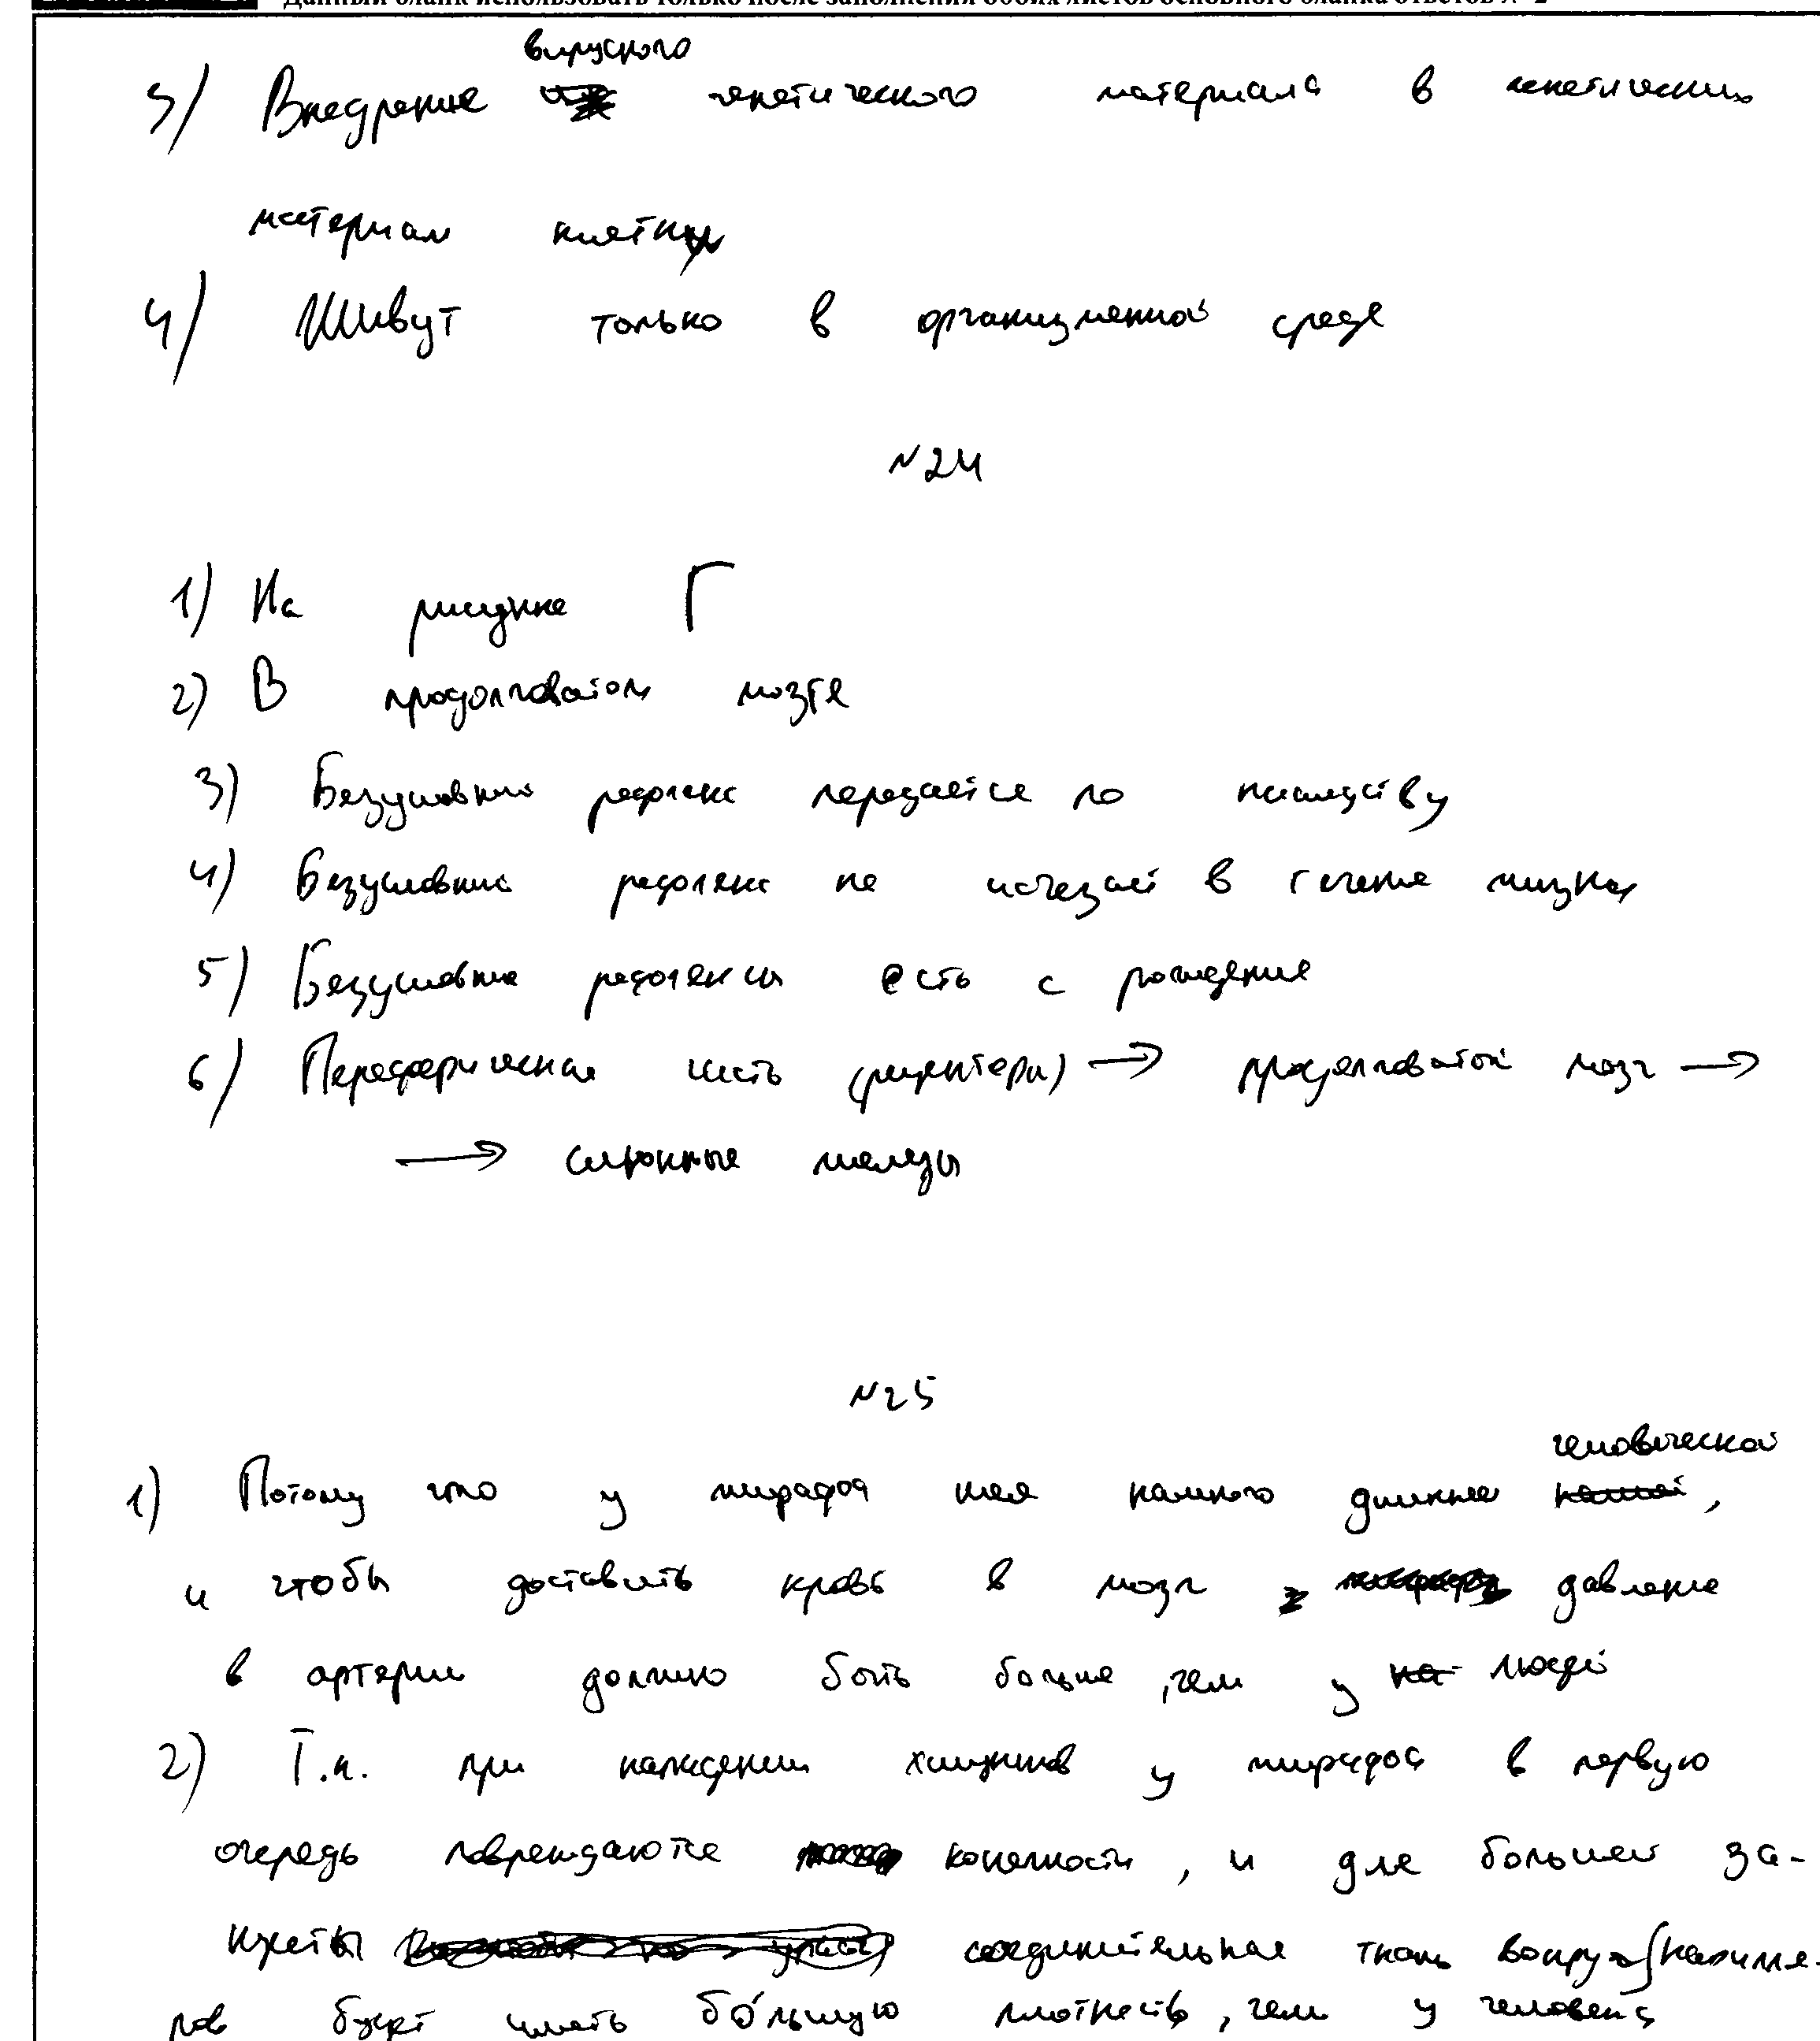 Данный бланк использовать только после заполнения обоих листов основного бланка ответов № 2
вирусного
3) Внедрение генетического материала в генетический
материал клетки
4) Живут только в организменной среде
№24
1) На рисунке Г
2) В продолговатом мозге
3) Безусловный рефлекс передаётся по наследству
4) Безусловный рефлекс не исчезает в течение жизни
5) Безусловные рефлексы есть с рождение
6) Пересферическая часть (рецепторы) → продолговатый мозг →
→ слюнные железы
№25
человеческой
1) Потому что у жирафов шея намного длиннее нашей,
и чтобы доставить кровь в мозг давление
в артерии должно быть больше, чем у людей
2) Т.к. при нападении хищников у жирафов в первую
очередь повреждаются конечности, и для большей за-
щиты соединительная ткань вокруг капилля-
ров будет иметь бо́льшую плотность, чем у человека